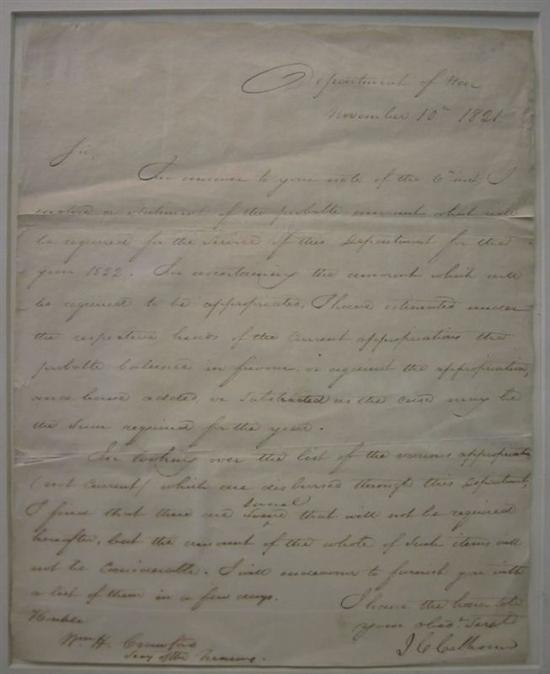 Department of War
November 10th 1821
Sir,
In answer to your note of the 6th inst, I
enclose a statement of the probable amount which will
be required for the service of this Department for the
year 1822. In ascertaining the amount which will
be required to be appropriated, I have estimated under
the respective heads of the current appropriations the
probable balance in favour, or against the appropriation,
and have added, or substracted as the case may be
the sum required for the year.
In looking over the list of the various appropriations
(not current) which are disbursed through this Department,
I find that there are several that will not be required
hereafter, but the amount of the whole of such items will
not be considerable. I will endeavour to furnish you with
a list of them in a few days.
I have the honor to be
your obdt. Servt
J C Calhoun
Honble
Wm H. Crawford
Secy of the Treasury.